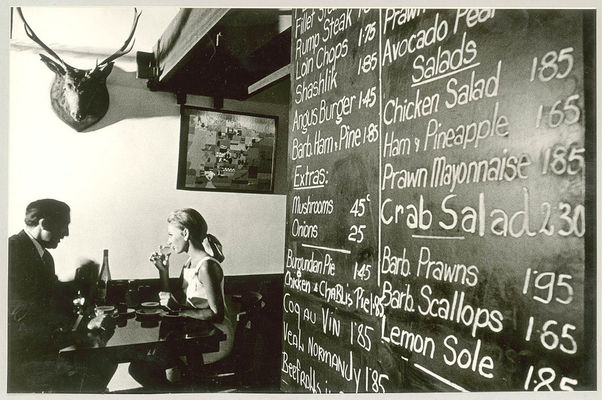 Fillet Steak
Rump Steak 1·75
Loin Chops 1·85
Shashlik
Angus Burger 1·45
Barb. Ham & Pine 1·85
Extras:
Mushrooms 45c
Onions 25
Burgundian Pie 1·45
Chicken & Chablis Pie 1·85
Coq au Vin 1·85
Veal Normandy 1·85
Prawn
Avocado Pear
Salads 1·85
Chicken Salad 1·65
Ham & Pineapple 1·85
Prawn Mayonnaise
Crab Salad 2·30
Barb. Prawns 1·95
Barb. Scallops 1·65
Lemon Sole 1·85